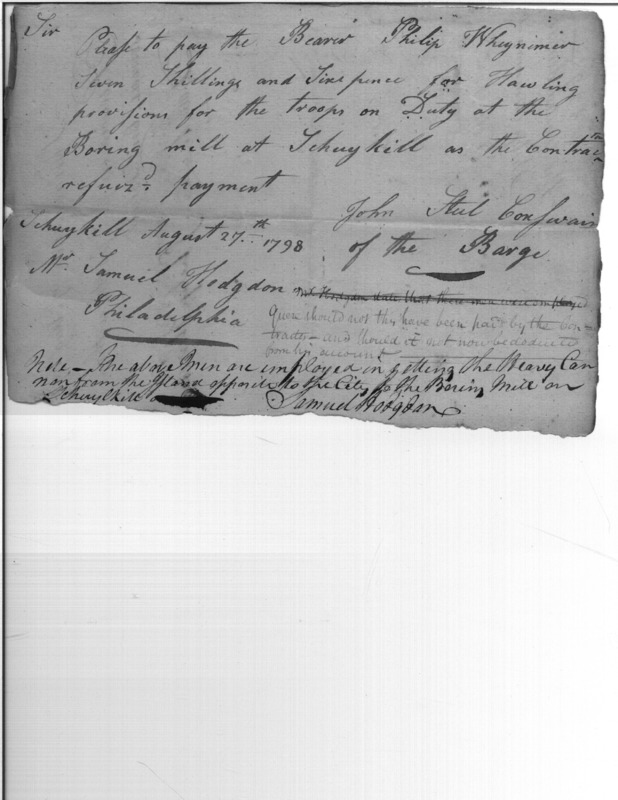 Sir
Pease to pay the Bearer Philip Wheynimer
Seven Shillings and Sixe pence for Hawling
provisions for the troops on Duty at the
Boring mill at Schuykill as the Contrac
refuiz.d payment
Schuykill August 27.th 1798
John Stul Coxswain
of the Barge
Mr. Samuel Hodgdon
Philadelphia
Mr Hodgdon states that these men were employed
Quere should not thy have been paid by the Con-
tractor - and should it not now be deducted
from his account
Note - The above men are employed in getting the Heavy Can
non from the Island opposite to the City to the Boring Mill on
Schuylkill
Samuel Hodgdon